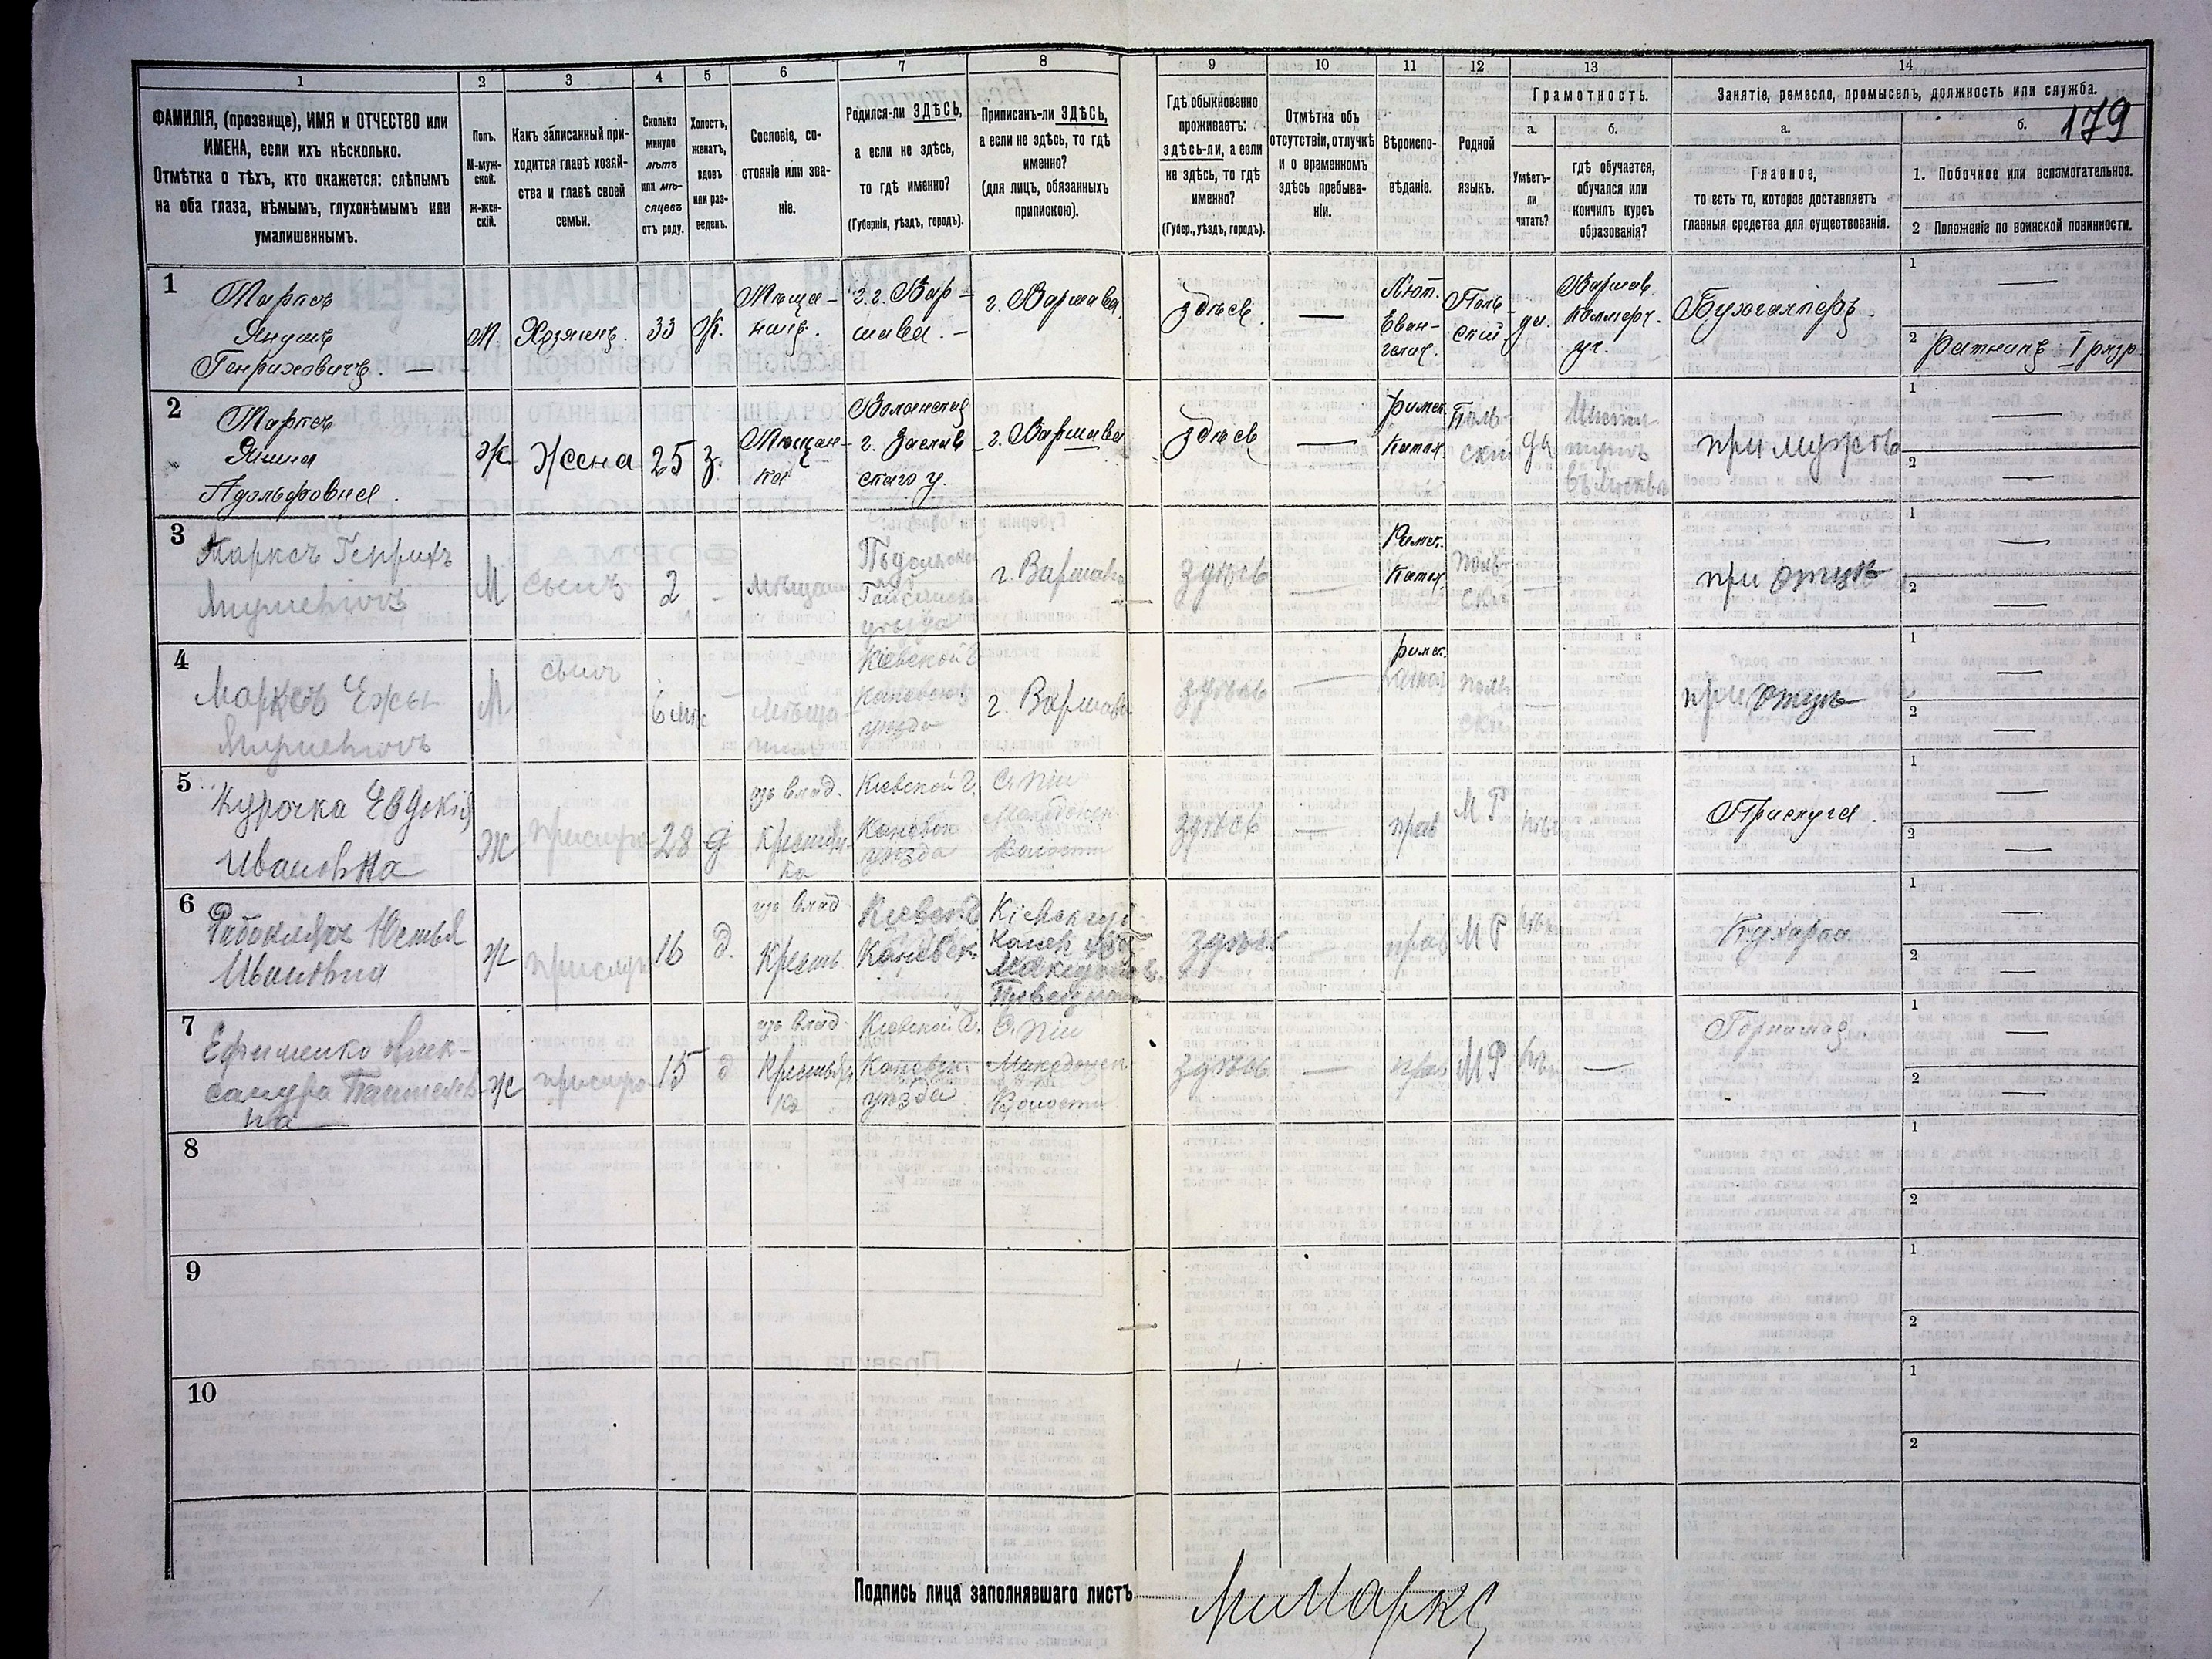 1 2 3 4 5 6 7 8 9 10 11 12 13 14
179
ФАМИЛІЯ, (прозвище), ИМЯ и ОТЧЕСТВО или
ИМЕНА, если ихъ нѣсколько.
Отмѣтка о тѣхъ, кто окажется: слѣпымъ
на оба глаза, нѣмымъ, глухонѣмымъ или
умалишеннымъ.
Полъ.
М-муж-
ской.
Ж-жен-
скій.
Какъ записанный при-
ходится главѣ хозяй-
ства и главѣ своей
семьи.
Сколько
минуло
лѣтъ
или мѣ-
сяцевъ
отъ роду.
Холостъ,
женатъ,
вдовъ
или раз-
веденъ.
Сословіе, со-
стояніе или зва-
ніе.
Родился-ли ЗДѢСЬ,
а если не здѣсь,
то гдѣ именно?
(Губернія, уѣздъ, городъ).
Приписанъ-ли ЗДѢСЬ,
а если не здѣсь, то гдѣ
именно?
(для лицъ, обязанныхъ
припискою).
Гдѣ обыкновенно
проживаетъ:
здѣсь-ли, а если
не здѣсь, то гдѣ
именно?
(Губер., уѣздъ, городъ).
Отмѣтка объ
отсутствіи, отлучкѣ
и о временномъ
здѣсь пребыва-
ніи.
Вѣроиспо-
вѣданіе.
Родной
языкъ.
Грамотность.
а.
Умѣетъ-
ли
читать?
б.
гдѣ обучается,
обучался или
кончилъ курсъ
образованія?
Занятіе, ремесло, промыселъ, должность или служба.
а.
Главное,
то есть то, которое доставляетъ
главныя средства для существованія.
б.
1. Побочное или вспомогательное.
2 Положеніе по воинской повинности.
1
Марксъ
Янушъ
Генриховичъ. —
М.
Хозяинъ.
33
Ж.
Мѣща-
нинъ.
г. Вар-
шава. —
г. Варшава
здѣсь.
—
Лют.
Еван-
гелич.
Поль
ский
да.
Варшав.
Коммерч.
уч.
Бухгалтеръ.
1 —
2 Ратникъ I разр
2
Марксъ
Янина
Адольфовна.
Ж
Жена
25
з.
Мѣщан-
ка
Волынской
г. Заслав
скаго у.
г. Варшава
здѣсь
—
римск.
Катол.
Поль
ский
да
въ Москвѣ
при мужѣ
1 —
2 —
3
Марксъ Генрихъ
М
сынъ
2
-
Подольской
Гайсинск
уѣзда
г. Варшава
здѣсь
—
Римск.
Катол.
поль
ский
—
при отцѣ
1 —
2 —
4
Марксъ Ежы
М
сынъ
6 мѣс
—
мѣща-
нинъ
Кіевской г.
Каневскаго
уѣзда
г. Варшава
здѣсь
—
римск.
катол
поль
ский
—
при отцѣ
1 —
2 —
5
Курочка Евдокія
Ивановна
Ж
прислуга
28
д
изъ влад.
Крестьян
ка
Кіевской г.
Каневск
уѣзда
Македонск.
Волости
здѣсь
—
прав
МР
нѣтъ
Прислуга.
1 —
2 —
6
Ивановна
Ж
прислуг
16
д.
изъ влад
Крестьян
Кіевск. г
Каневск
здѣсь
—
прав
МР
нѣтъ
Кухарка
1 —
2 —
7
Ефименко Алек-
сандра Пантелеев
на —
Ж
прислуга
15
д
изъ влад
Крестьян
ка
Кіевской г.
Каневск.
уѣзда
Македонск
Волости
здѣсь
—
прав
МР
нѣтъ
—
Горничная.
1 —
2 —
8
1
2
9
1
2
10
1
2
Подпись лица заполнявшаго листъ
Маркс